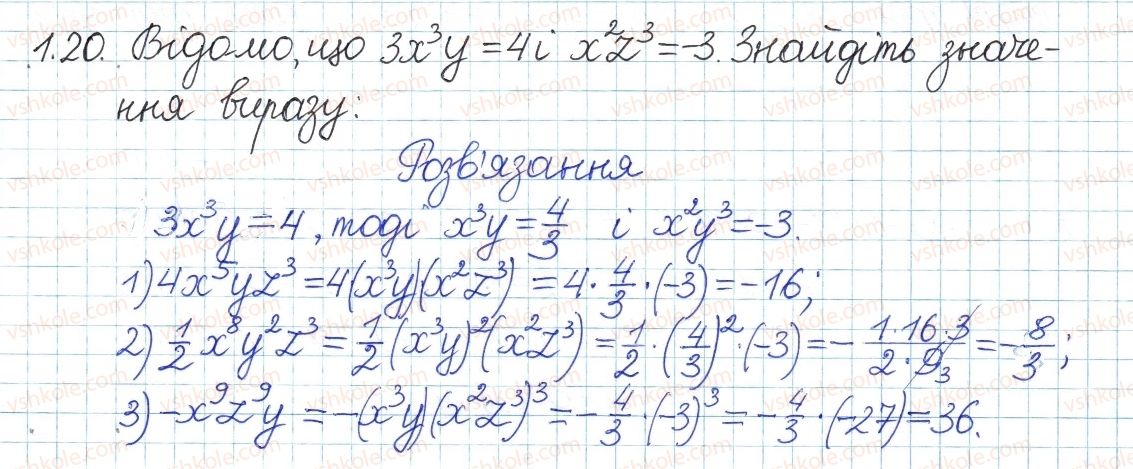 1.20. Відомо, що 3x³y = 4 і x²z³ = -3. Знайдіть значе-
ння виразу:
Розв'язання
3x³y = 4, тоді x³y = 4/3 і x²y³ = -3.
1) 4x⁵yz³ = 4(x³y)(x²z³) = 4 · 4/3 · (-3) = -16;
2) 1/2 x⁸y²z³ = 1/2 (x³y)²(x²z³) = 1/2 · (4/3)² · (-3) = - 1·16·3/2·9 3 = - 8/3;
3) -x⁹z⁹y = -(x³y)(x²z³)³ = - 4/3 · (-3)³ = - 4/3 · (-27) = 36.